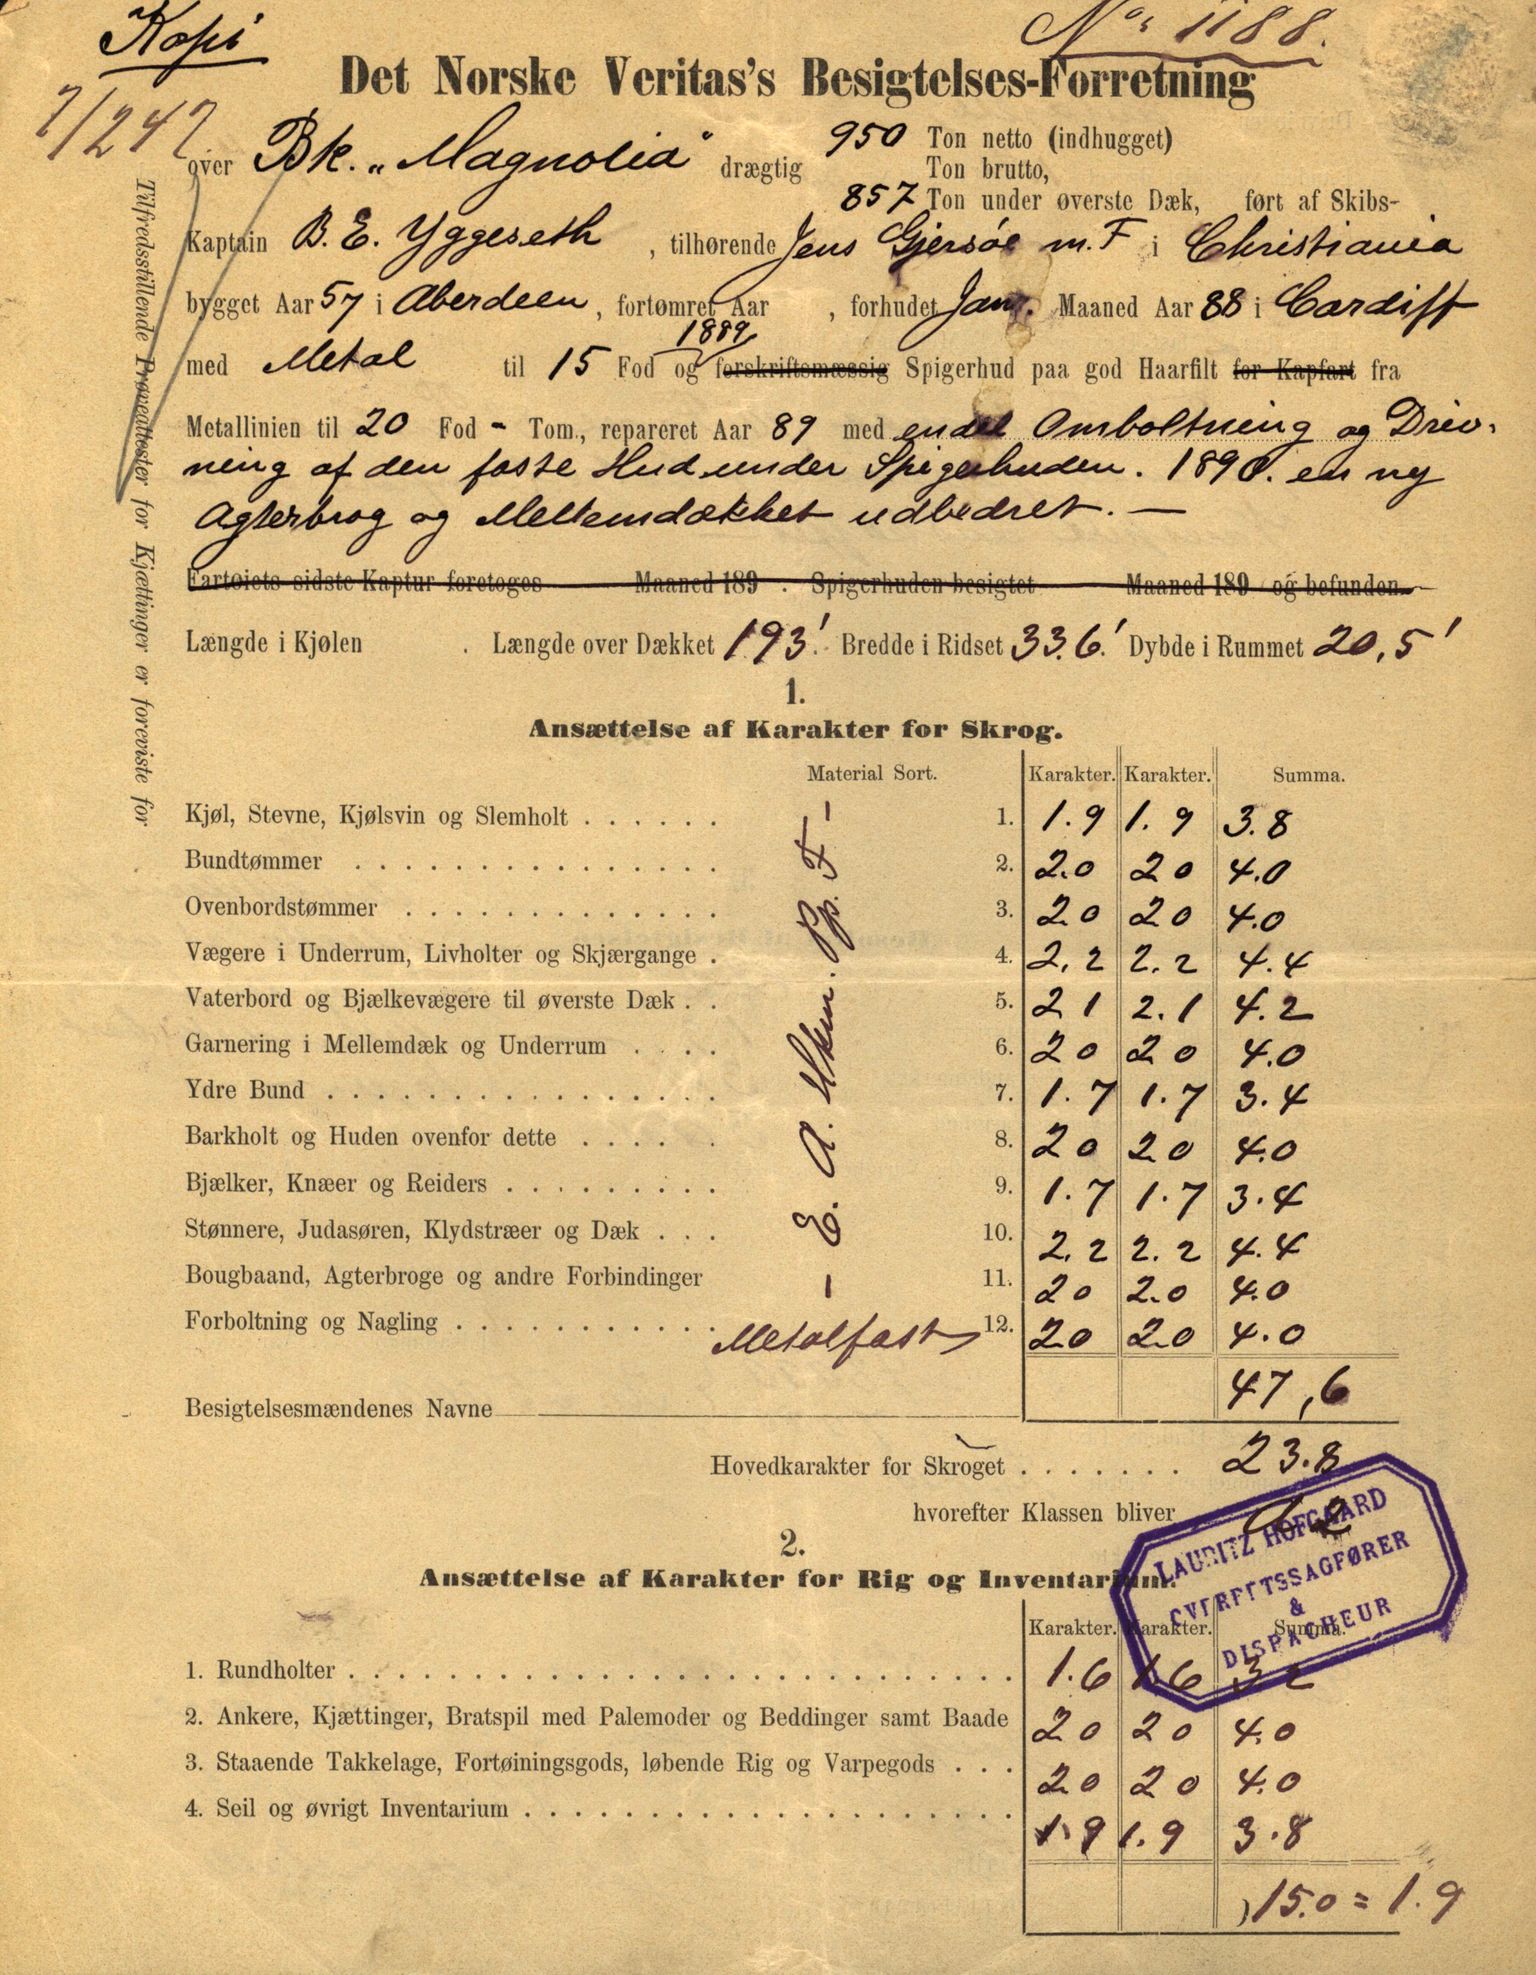 Kopi
No 1188.
Det Norske Veritas's Besigtelses-Forretning
7/247
over Bk. „Magnolia" drægtig 950 Ton netto (indhugget)
Ton brutto,
857 Ton under øverste Dæk, ført af Skibs-
Kaptain B. E. Yggeseth, tilhørende Jens Gjersøe m. F i Christiania
bygget Aar 57 i Aberdeen, fortømret Aar , forhudet Janr. Maaned Aar 88 i Cardiff
1889
med Metal til 15 Fod og forskriftsmæssig Spigerhud paa god Haarfilt for Kapfart fra
Metallinien til 20 Fod - Tom., repareret Aar 89 med endel Omboltning og Driv-
ning af den faste Hud under Spigerhuden. 1890. en ny
Agterbrog og Mellemdækket udbedret. —
Fartøiets sidste Kaptur foretoges Maaned 189 . Spigerhuden besigtet Maaned 189 og befunden
Længde i Kjølen . Længde over Dækket 193'. Bredde i Ridset 33.6'. Dybde i Rummet 20,5'
Tilfredsstillende Prøveattester for Kjættinger er foreviste for
1.
Ansættelse af Karakter for Skrog.
Material Sort. Karakter. Karakter. Summa.
Kjøl, Stevne, Kjølsvin og Slemholt . . . . . . 1. 1.9 1.9 3.8
Bundtømmer . . . . . . . . . . . . . . . 2. 2.0 20 4.0
Ovenbordstømmer . . . . . . . . . . . . . 3. 20 20 4.0
Vægere i Underrum, Livholter og Skjærgange . 4. 2.2 2.2 4.4
Vaterbord og Bjælkevægere til øverste Dæk . . 5. 21 2.1 4.2
Garnering i Mellemdæk og Underrum . . . . 6. 20 20 4.0
Ydre Bund . . . . . . . . . . . . . . . . 7. 1.7 1.7 3.4
Barkholt og Huden ovenfor dette . . . . . 8. 20 20 4.0
Bjælker, Knæer og Reiders . . . . . . . . . 9. 1.7 1.7 3.4
Stønnere, Judasøren, Klydstræer og Dæk . . . 10. 2.2 2.2 4.4
Bougbaand, Agterbroge og andre Forbindinger 11. 20 2.0 4.0
Forboltning og Nagling . . . . . . . . . . . Metalfast 12. 20 20 4.0
- E. A. Pp. F -
47,6
Besigtelsesmændenes Navne
Hovedkarakter for Skroget . . . . . . . 23.8
hvorefter Klassen bliver
2.
Ansættelse af Karakter for Rig og Inventarium.
LAURITZ HOFGAARD
OVERRETSSAGFØRER
&
DISPACHEUR
Karakter. Karakter. Summa.
1. Rundholter . . . . . . . . . . . . . . . . . . . . . . . . . . . 1.6 1.6 3 2
2. Ankere, Kjættinger, Bratspil med Palemoder og Beddinger samt Baade 20 20 4.0
3. Staaende Takkelage, Fortøiningsgods, løbende Rig og Varpegods . . . 20 20 4.0
4. Seil og øvrigt Inventarium . . . . . . . . . . . . . . . . . . . . 1.9 1.9 3.8
15.0 = 1.9